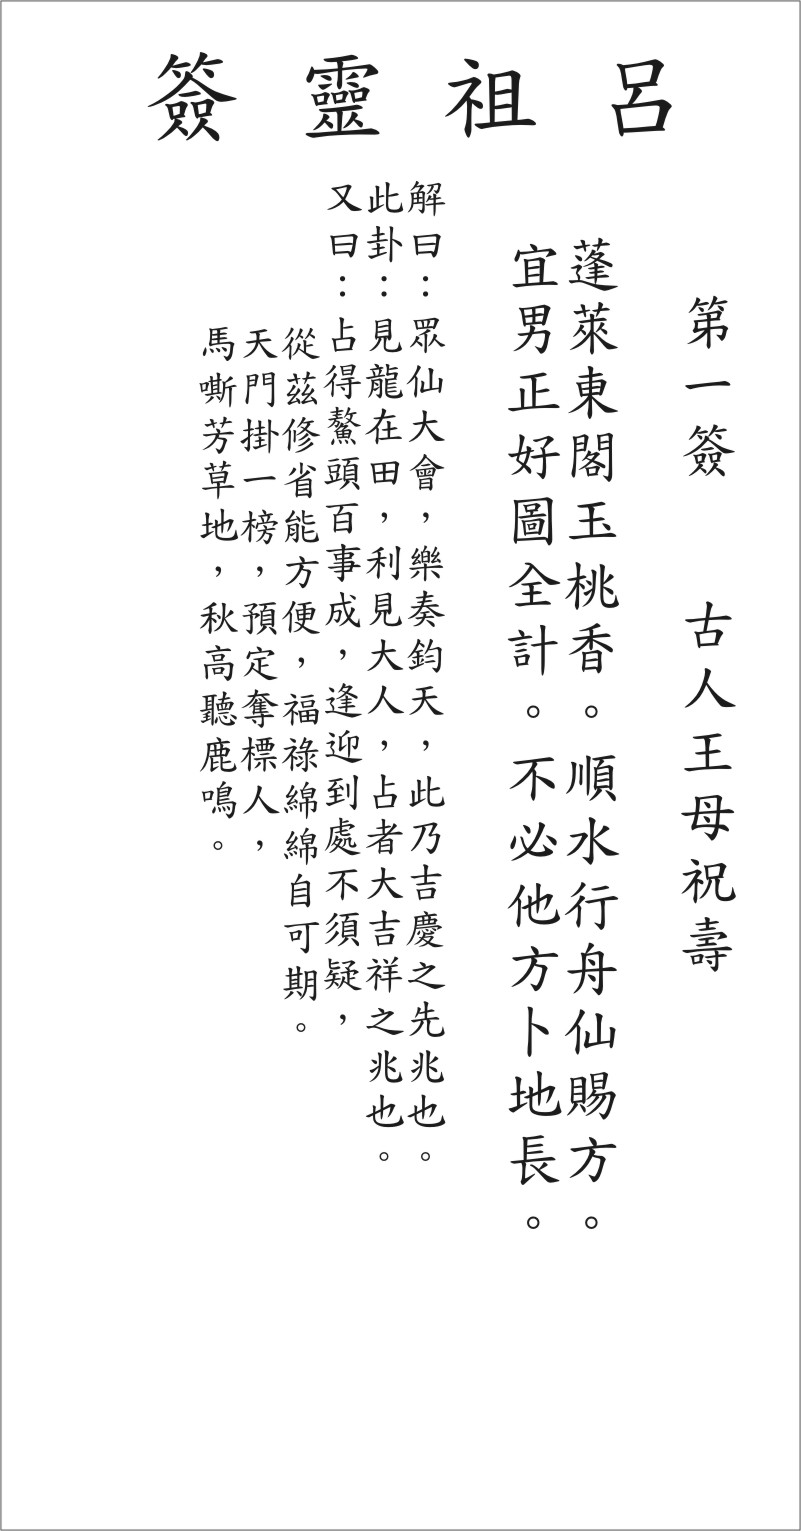 呂祖靈簽
第一簽 古人王母祝壽
蓬萊東閣玉桃香。順水行舟仙賜方。
宜男正好圖全計。不必他方卜地長。
解曰：眾仙大會，樂奏鈞天，此乃吉慶之先兆也。
此卦：見龍在田，利見大人，占者大吉祥之兆也。
又曰：占得鰲頭百事成，逢迎到處不須疑，
從茲修省能方便，福祿綿綿自可期。
天門掛一榜，預定奪標人，
馬嘶芳草地，秋高聽鹿鳴。